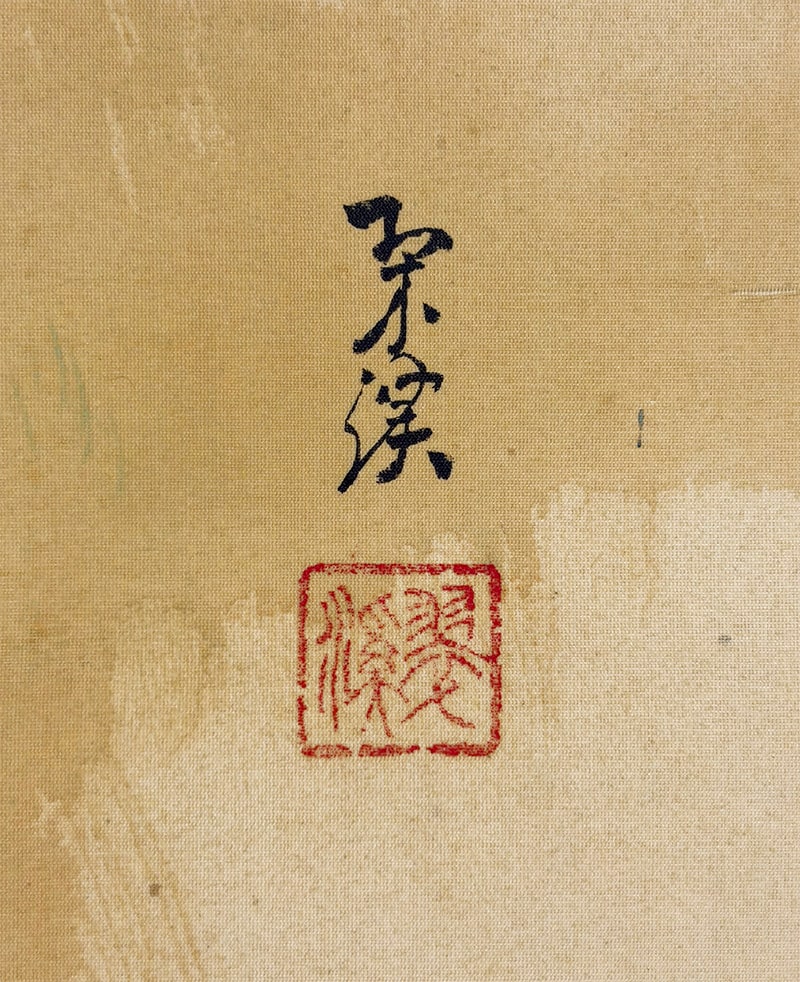 翠溪
翠溪